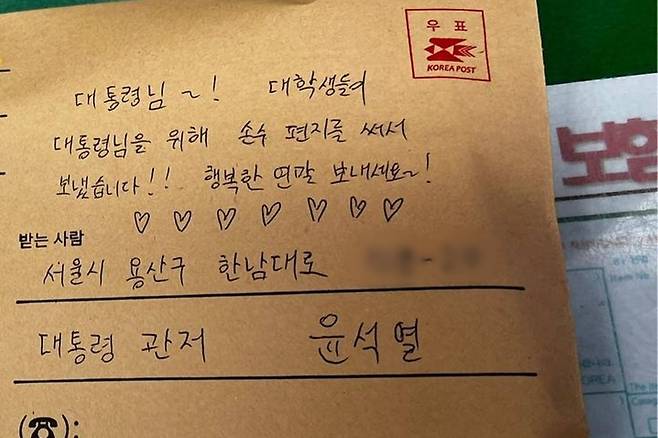 우표
KOREA POST
대통령님~! 대학생들이
대통령님을 위해 손수 편지를 써서
보냈습니다!! 행복한 연말 보내세요~!
♡ ♡ ♡ ♡ ♡ ♡ ♡
받는 사람
서울시 용산구 한남대로
대통령 관저 윤석열
(☎):
보험